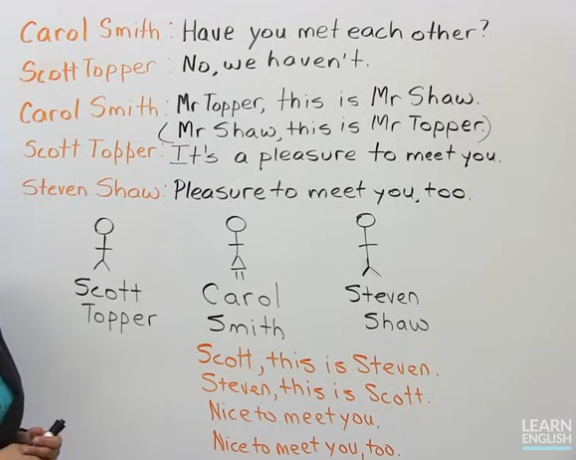 Carol Smith: Have you met each other?
Scott Topper: No, we haven't.
Carol Smith: Mr Topper, this is Mr Shaw.
(Mr Shaw, this is Mr Topper.)
Scott Topper: It's a pleasure to meet you.
Steven Shaw: Pleasure to meet you, too.
Scott Topper
Carol Smith
Steven Shaw
Scott, this is Steven.
Steven, this is Scott.
Nice to meet you.
Nice to meet you, too.
LEARN
ENGLISH